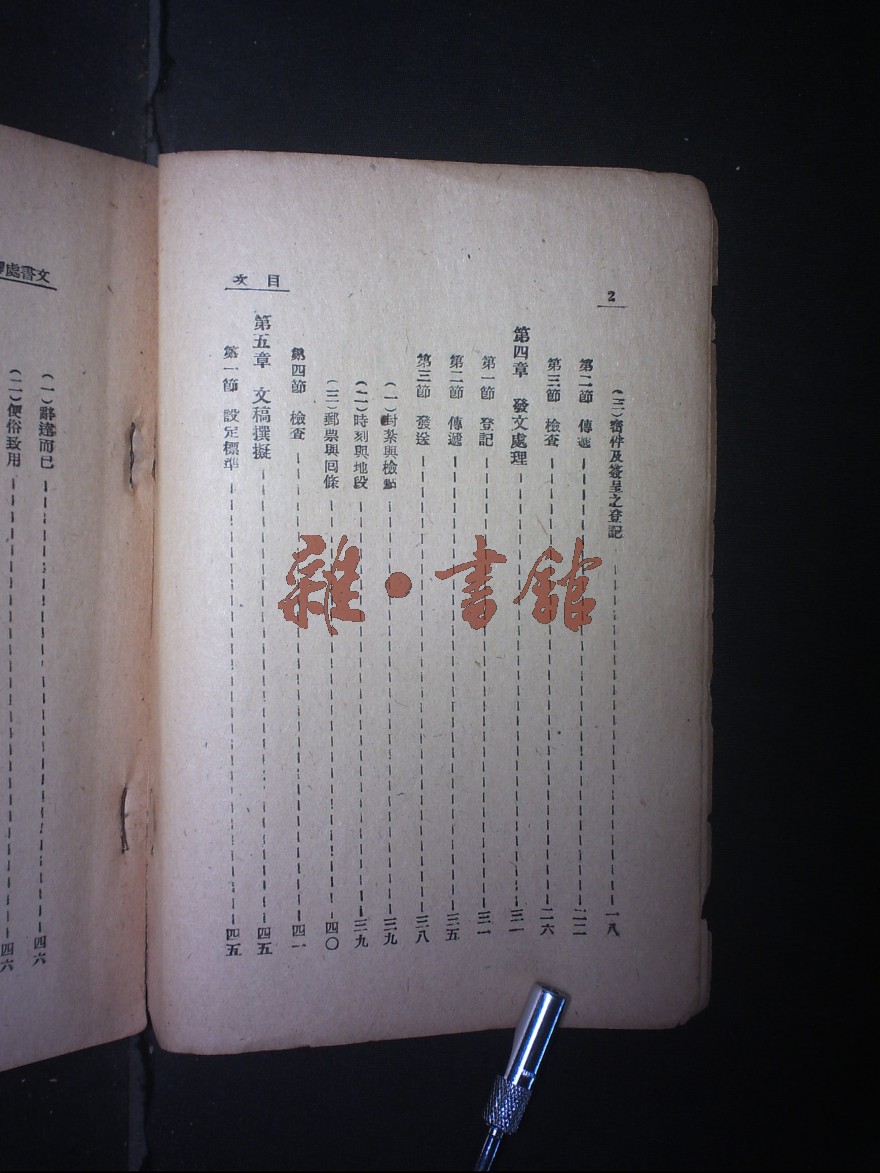 2
目次
(三)密件及簽呈之登記 一八
第二節 傳遞 二二
第三節 檢查 二六
第四章 發文處理 三一
第一節 登記 三一
第二節 傳遞 三五
第三節 發送 三八
(一)封紮與檢點 三九
(二)時刻與地段 三九
(三)郵票與回條 四〇
第四節 檢查 四一
第五章 文稿撰擬 四五
第一節 設定標準 四五
文書處
(一)辭達而已 四六
(二)便俗致用 四六
雜·書館